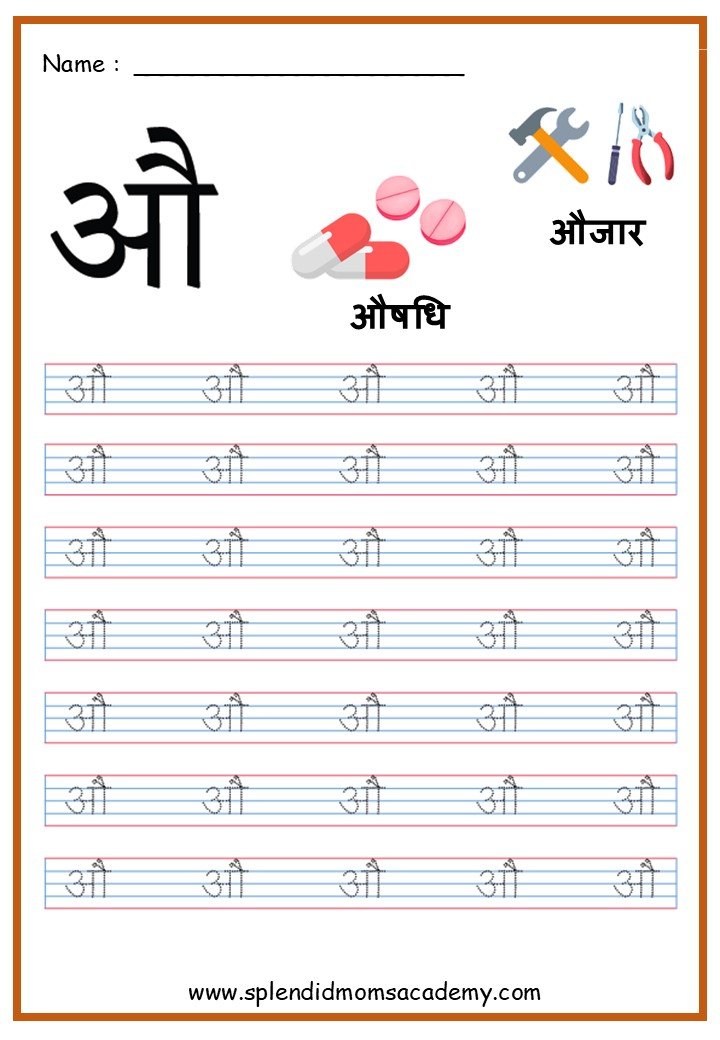 Name : ______________________
औ
औजार
औषधि
औ औ औ औ औ
औ औ औ औ औ
औ औ औ औ औ
औ औ औ औ औ
औ औ औ औ औ
औ औ औ औ औ
औ औ औ औ औ
www.splendidmomsacademy.com